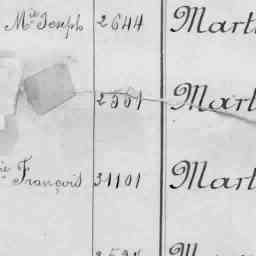 Mie Joseph 2644 Mart
2501 Mart
ie François 31101 Mart